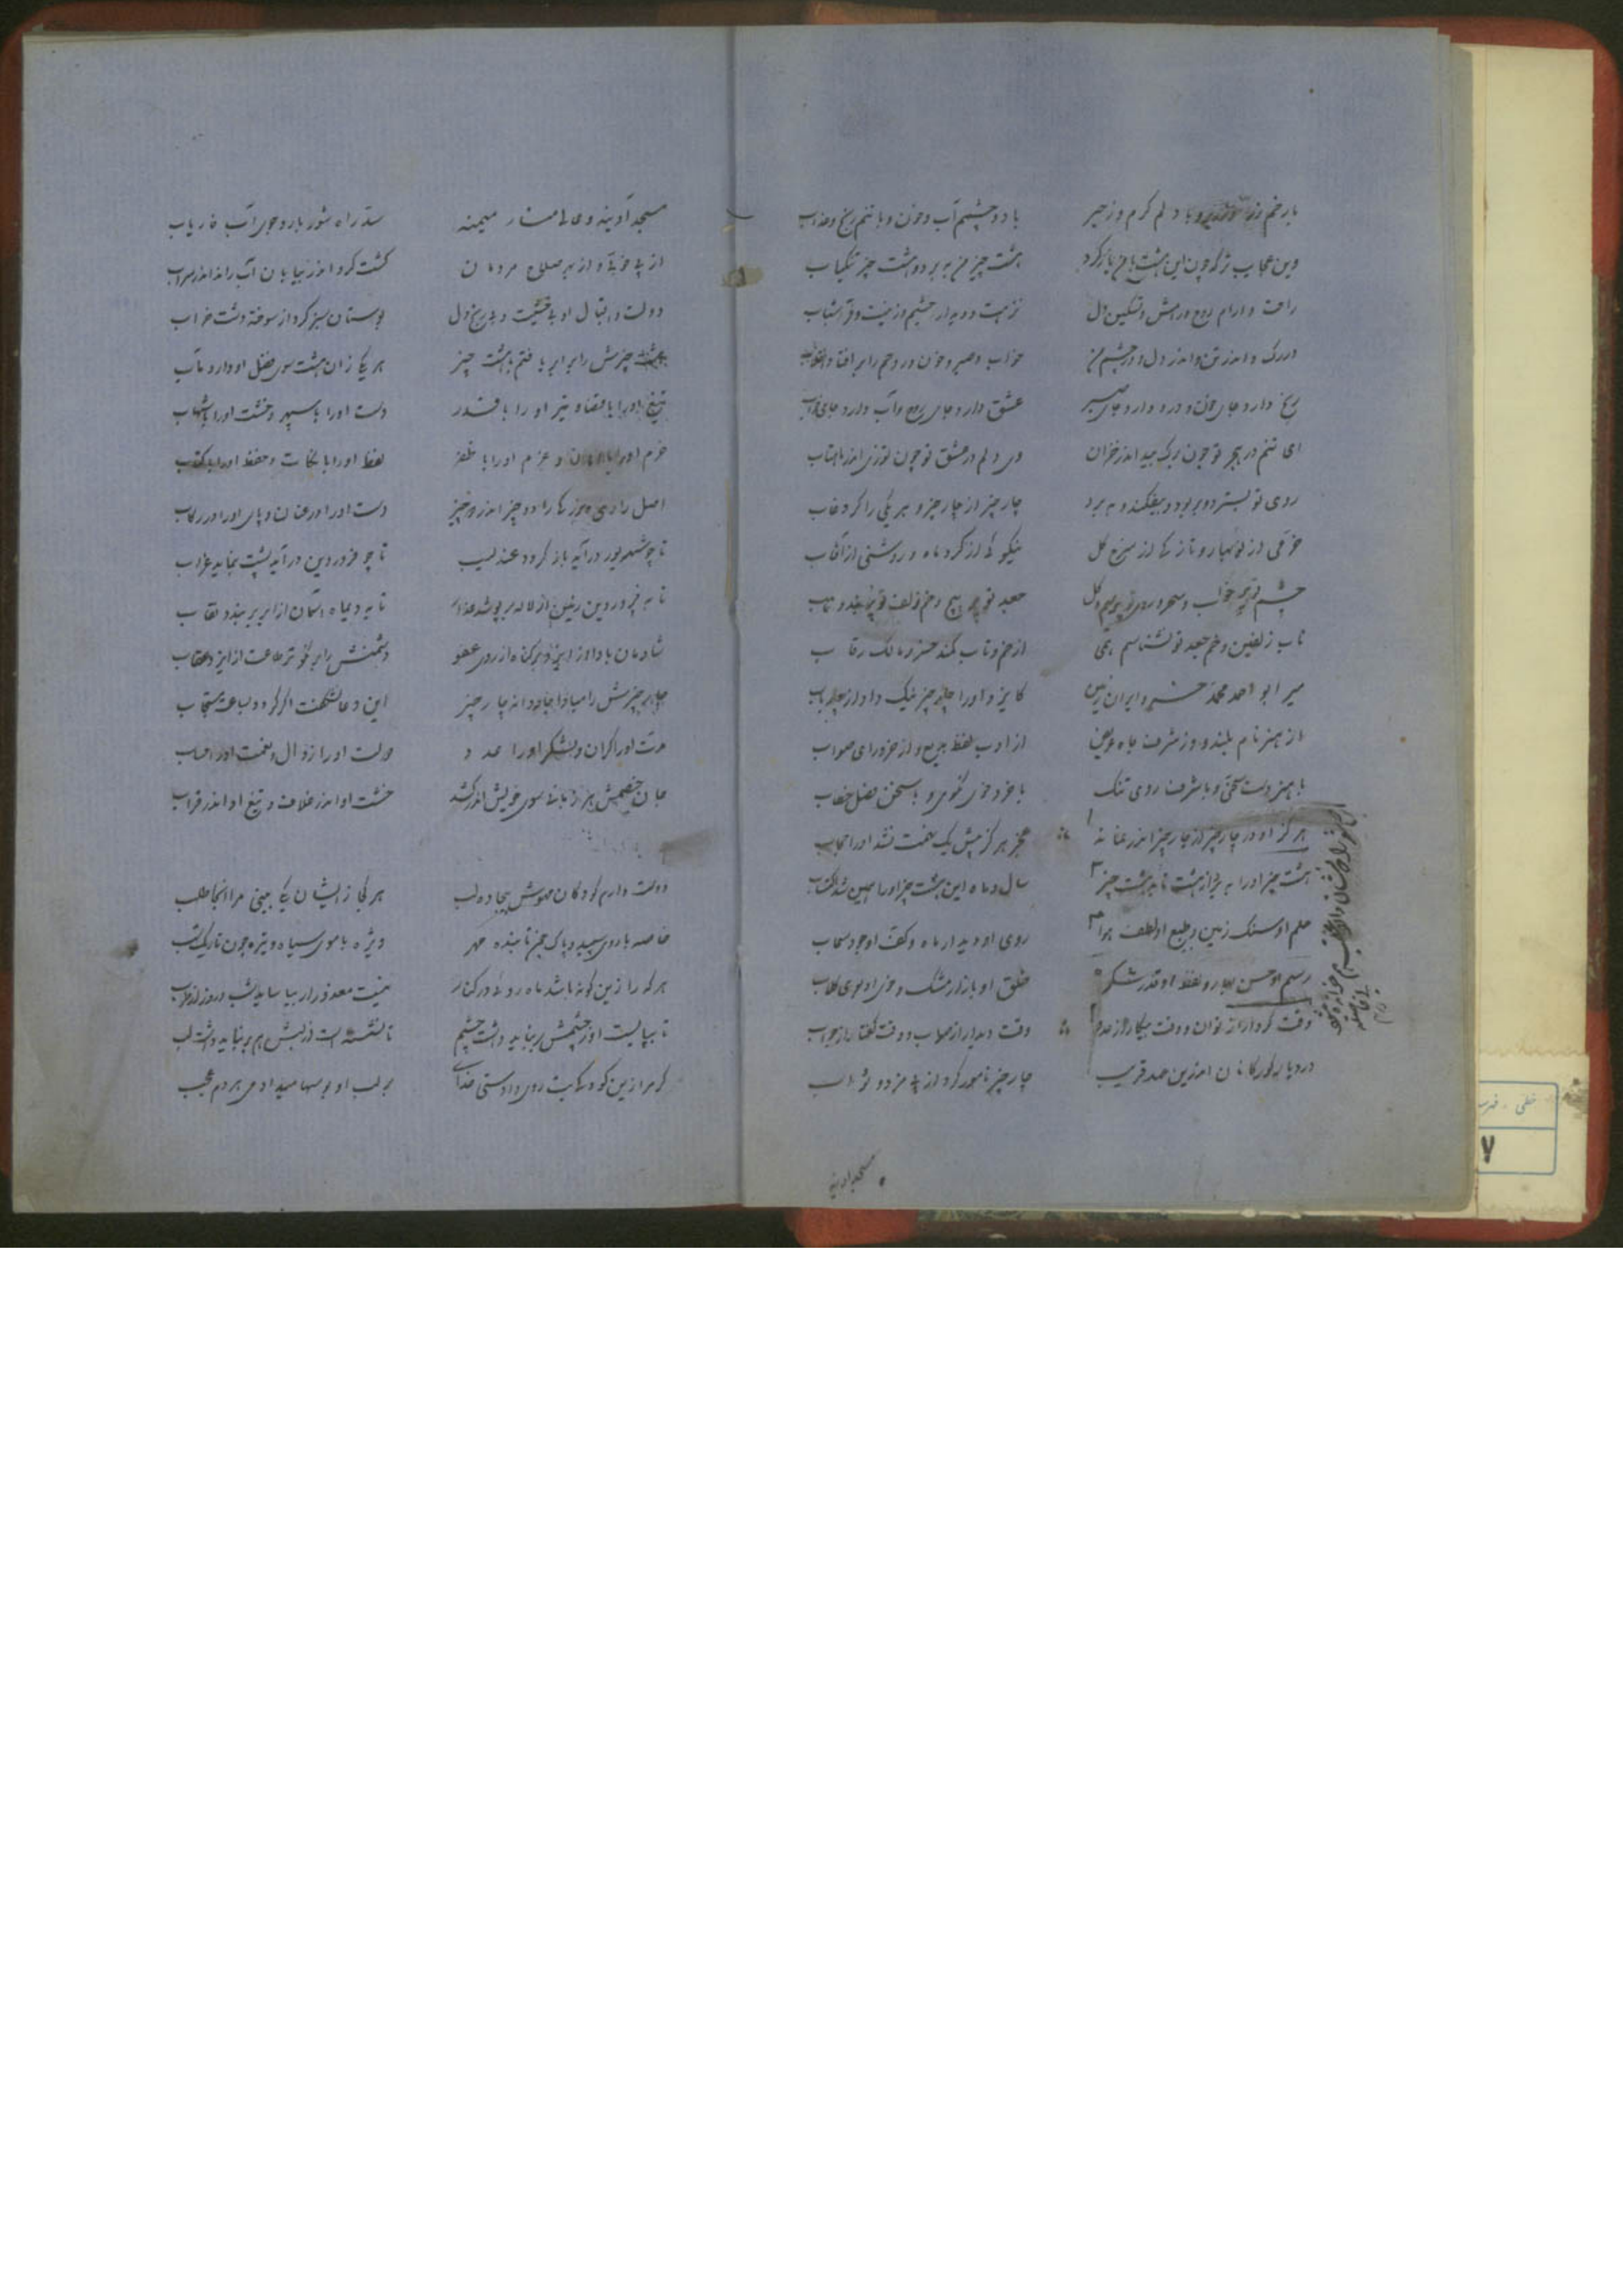 با دو چشیم آب و خون و با تنم رنج و عذاب
بارخم زر و با دلم کرم و زحیر
وین عجایب تر که چون این هشت با من یار کرد
هشت چیز من ببر دو هشت چیز تنکیاب
راحت و ارام روح و رامش و تسکین دل
نزهت و دیدار چشیم و زینت و فر شباب
در رک و اندر تن و اندر دل و در چشم من
خواب و صبر و خون و روحم را بر افتاد انقلاب
رنج دارد جای خون و درد دارد جای صبر
عشق دارد جای روح و آب دارد جای خواب
ای تنم در هجر تو چون برک بید اندر خزان
وی دلم در عشق تو چون توزی اندر ماهتاب
روی تو بستر دو بربود و بیفکند و ببرد
چار چیز از چار چیز و هر یکی را کرد غاب
خرمی از نوبهار و تازکی از سرخ کل
نیکوئی از کرد ماه و روشنی از آفتاب
تاب زلفین و خم جعد تو نشناسم همی
از خم و تاب کمند خسرو مالک رقاب
میر ابو احمد محمد خسرو ایران زمین
کایزد او را چار چیز نیک داد از چار باب
از هنر نام بلند و از شرف جاه عریض
از ادب لفظ بدیع و از خرد رای صواب
با هنر دست سخی و با شرف روی تنک
با خرد خوی نکوی و با سخن فضل خطاب
هرکز او در چار چیز از چار چیز اندر نماند
عجز هرکز پیش یک سخت نشد او را حجاب
هشت چیز او را ببرد از هشت مایه هشت چیز
سال و ماه این هشت چیز او را همین شد اکتساب
حلم او سنک زمین و طبع او لطف هوا
روی او دیدار ماه و کف او جود سحاب
رسم او حسن بهار و لفظ او قدر شکر
خلق او بازار مشک و خوی او بوی کلاب
وقت کردار از توان و وقت پیکار از عدم
وقت دیدار از صواب و وقت کفتار از جواب
در دیار کورکانان اندرین عهد قریب
چار چیز نامور کرد از پی مزد و ثواب
مسجد آدینه
مسجد آدینه و عالی منار میمنه
سد راه شور بار و جوی آب فاریاب
از پی خوید و از بهر صلاح مردمان
کشت کرد اندر بیابان آب راند اندر سراب
دولت و اقبال او بی خشیت و بی رنج دل
بوستان سبز کرد از سوخته دشت خراب
هشت چیزش را برابر یافتم با هشت چیز
هر یکی زان هشت سوی فضل او دارد مآب
تیغ او را با قضا و تیر او را با قدر
دست او را با سپهر و خشت او را با شهاب
حزم او را با امان و عزم او را با ظفر
لفظ او را با نکات و حفظ او را با کتاب
دست او را در عنان و پای او را در رکاب
تا چو شهریور درآید باز کردد عندلیب
تا چو فروردین درآید پشت بنماید غراب
تا به فروردین زمین از لاله بر پوشد
تا به دیماه آسمان از ابر بر بندد نقاب
شادمان باد او ز ایزد بر کناه از روی عفو
دشمنش را بر نکوتر طاعت از ایزد عقاب
چار چیزش را مبادا جاودانه چار چیز
این دعا نشکفت اکر کردد بساعت مستجاب
مدت او را کران و لشکر او را عدد
دولت او را زوال و نعمت او را حساب
جان خصمش هر زمانی سوی خویش اندر کشد
خشت او اندر خلاف و تیغ او اندر قراب
دوست دارم کودکان مهوش بیجاده لب
هر کجا زایشان یکی بینی مرا آنجا طلب
خاصه با روی سپید و پاک چون تابنده مهر
ویژه با موی سیاه و تیره چون تاریک شب
هر که را زین کونه باشد ماه روئی در کنار
نیست معذور ار بیاساید شب و روز از طرب
تا بپایست او ز چشمش بر نباید داشت چشم
تا نشسته است از لبش هم بر نباید داشت لب
کر مرا زین کودکان بت روی دادستی خدای
بر لب او بوسها میدادمی هر دم عجب
خطی - فهر
۷